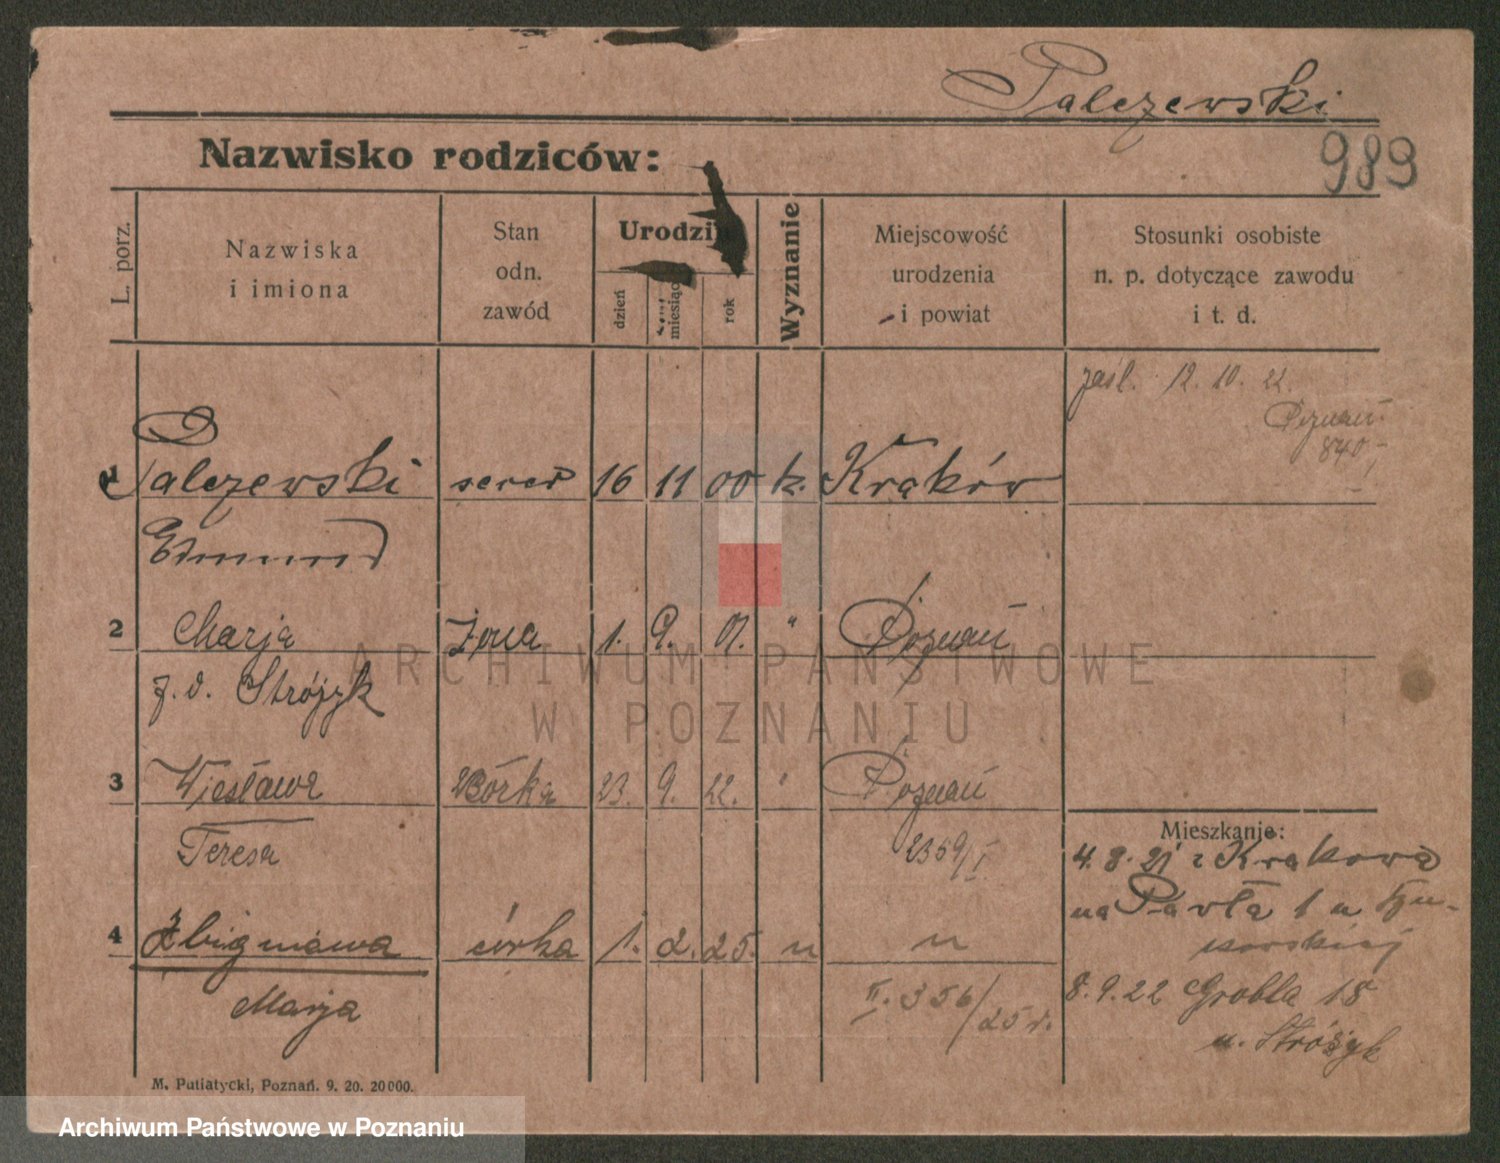 Palczewski
989
Nazwisko rodziców:
L. porz.
Nazwiska
i imiona
Stan
odn.
zawód
Urodzin
dzień
miesiąc
rok
Wyznanie
Miejscowość
urodzenia
i powiat
Stosunki osobiste
n. p. dotyczące zawodu
i t. d.
zaśl. 12. 10. 22.
Poznań
840
1 Palczewski 16 11 00 k. Kraków
Edmund
2 Marja żona 1. 9. 01. " Poznań
z. d. Strójzyk
3 Wiesława córka 23. 9. 22. " Poznań
Teresa 2359/I
Mieszkanie:
4. 8. 21 z Krakowa
na Pawła 1 u
4 Zbigniewa córka 1. 2. 25. " "
Marja II. 356/25 r.
8. 9. 22 Grobla 18
u. Stróżyk
M. Putiatycki, Poznań. 9. 20. 20000.
ARCHIWUM PAŃSTWOWE
W POZNANIU
Archiwum Państwowe w Poznaniu